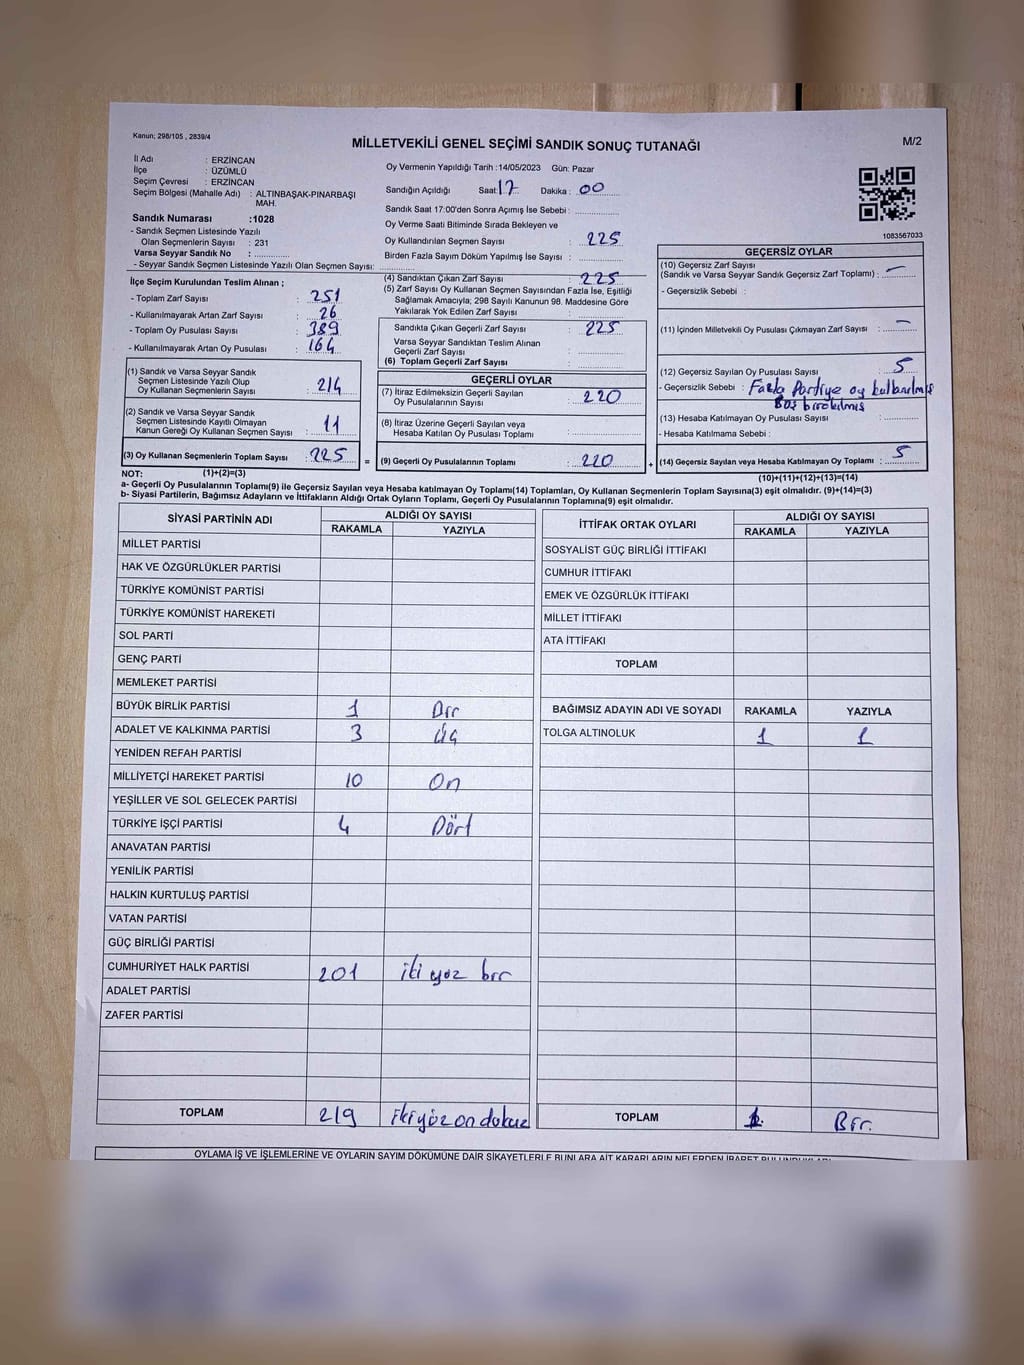 Kanun; 298/105 , 2839/4
MİLLETVEKİLİ GENEL SEÇİMİ SANDIK SONUÇ TUTANAĞI
M/2
İl Adı : ERZİNCAN
İlçe : ÜZÜMLÜ
Seçim Çevresi : ERZİNCAN
Seçim Bölgesi (Mahalle Adı) : ALTINBAŞAK-PINARBAŞI
MAH.
Sandık Numarası :1028
- Sandık Seçmen Listesinde Yazılı
Olan Seçmenlerin Sayısı : 231
Varsa Seyyar Sandık No :
- Seyyar Sandık Seçmen Listesinde Yazılı Olan Seçmen Sayısı:
İlçe Seçim Kurulundan Teslim Alınan ;
- Toplam Zarf Sayısı : 251
- Kullanılmayarak Artan Zarf Sayısı : 26
- Toplam Oy Pusulası Sayısı : 389
- Kullanılmayarak Artan Oy Pusulası : 164
(1) Sandık ve Varsa Seyyar Sandık
Seçmen Listesinde Yazılı Olup
Oy Kullanan Seçmenlerin Sayısı : 214
(2) Sandık ve Varsa Seyyar Sandık
Seçmen Listesinde Kayıtlı Olmayan
Kanun Gereği Oy Kullanan Seçmen Sayısı : 11
(3) Oy Kullanan Seçmenlerin Toplam Sayısı : 225
Oy Vermenin Yapıldığı Tarih :14/05/2023 Gün: Pazar
Sandığın Açıldığı Saat: 17 Dakika : 00
Sandık Saat 17:00'den Sonra Açımış İse Sebebi :
Oy Verme Saati Bitiminde Sırada Bekleyen ve
Oy Kullandırılan Seçmen Sayısı : 225
Birden Fazla Sayım Döküm Yapılmış İse Sayısı :
(4) Sandıktan Çıkan Zarf Sayısı : 225
(5) Zarf Sayısı Oy Kullanan Seçmen Sayısından Fazla İse, Eşitliği
Sağlamak Amacıyla; 298 Sayılı Kanunun 98. Maddesine Göre
Yakılarak Yok Edilen Zarf Sayısı :
Sandıkta Çıkan Geçerli Zarf Sayısı : 225
Varsa Seyyar Sandıktan Teslim Alınan
Geçerli Zarf Sayısı :
(6) Toplam Geçerli Zarf Sayısı :
GEÇERLİ OYLAR
(7) İtiraz Edilmeksizin Geçerli Sayılan
Oy Pusulalarının Sayısı : 220
(8) İtiraz Üzerine Geçerli Sayılan veya
Hesaba Katılan Oy Pusulası Toplamı :
= (9) Geçerli Oy Pusulalarının Toplamı : 220
1083567033
GEÇERSİZ OYLAR
(10) Geçersiz Zarf Sayısı
(Sandık ve Varsa Seyyar Sandık Geçersiz Zarf Toplamı) : —
- Geçersizlik Sebebi :
(11) İçinden Milletvekili Oy Pusulası Çıkmayan Zarf Sayısı : —
(12) Geçersiz Sayılan Oy Pusulası Sayısı : 5
- Geçersizlik Sebebi : Fazla Partiye oy kullanılmış
Boş bırakılmış
(13) Hesaba Katılmayan Oy Pusulası Sayısı :
- Hesaba Katılmama Sebebi :
+ (14) Geçersiz Sayılan veya Hesaba Katılmayan Oy Toplamı : 5
NOT: (1)+(2)=(3)
(10)+(11)+(12)+(13)=(14)
a- Geçerli Oy Pusulalarının Toplamı(9) ile Geçersiz Sayılan veya Hesaba katılmayan Oy Toplamı(14) Toplamları, Oy Kullanan Seçmenlerin Toplam Sayısına(3) eşit olmalıdır. (9)+(14)=(3)
b- Siyasi Partilerin, Bağımsız Adayların ve İttifakların Aldığı Ortak Oyların Toplamı, Geçerli Oy Pusulalarının Toplamına(9) eşit olmalıdır.
SİYASİ PARTİNİN ADI
ALDIĞI OY SAYISI
RAKAMLA YAZIYLA
MİLLET PARTİSİ
HAK VE ÖZGÜRLÜKLER PARTİSİ
TÜRKİYE KOMÜNİST PARTİSİ
TÜRKİYE KOMÜNİST HAREKETİ
SOL PARTİ
GENÇ PARTİ
MEMLEKET PARTİSİ
BÜYÜK BİRLİK PARTİSİ 1 Bir
ADALET VE KALKINMA PARTİSİ 3 Üç
YENİDEN REFAH PARTİSİ
MİLLİYETÇİ HAREKET PARTİSİ 10 On
YEŞİLLER VE SOL GELECEK PARTİSİ
TÜRKİYE İŞÇİ PARTİSİ 4 Dört
ANAVATAN PARTİSİ
YENİLİK PARTİSİ
HALKIN KURTULUŞ PARTİSİ
VATAN PARTİSİ
GÜÇ BİRLİĞİ PARTİSİ
CUMHURİYET HALK PARTİSİ 201 iki yüz bir
ADALET PARTİSİ
ZAFER PARTİSİ
TOPLAM 219 ikiyüz on dokuz
İTTİFAK ORTAK OYLARI
ALDIĞI OY SAYISI
RAKAMLA YAZIYLA
SOSYALİST GÜÇ BİRLİĞİ İTTİFAKI
CUMHUR İTTİFAKI
EMEK VE ÖZGÜRLÜK İTTİFAKI
MİLLET İTTİFAKI
ATA İTTİFAKI
TOPLAM
BAĞIMSIZ ADAYIN ADI VE SOYADI RAKAMLA YAZIYLA
TOLGA ALTINOLUK 1 1
TOPLAM 1 Bir.
OYLAMA İŞ VE İŞLEMLERİNE VE OYLARIN SAYIM DÖKÜMÜNE DAİR ŞİKAYETLERLE BUNLARA AİT KARARLARIN NELERDEN İBARET BULUNDUKLARI